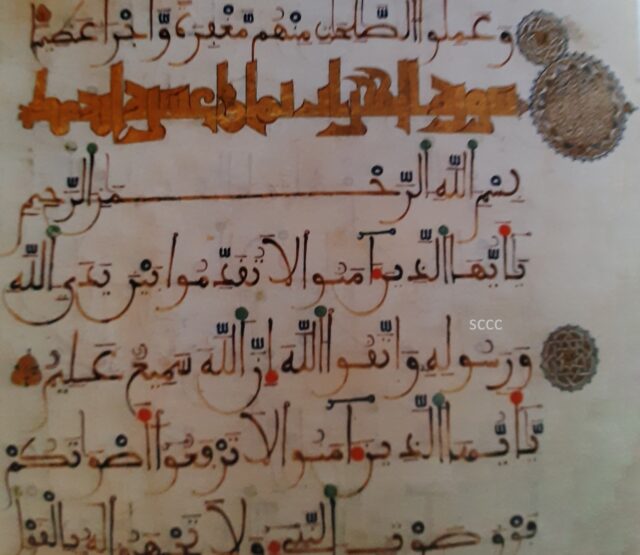 وَعَمِلُوا الصَّلِحَتِ مِنْهُم مَّغْفِرَةً وَّأَجْرًا عَظِيمًا
سورة الحجرات
بِسْمِ اللَّهِ الرَّحْمَنِ الرَّحِيمِ
يَأَيُّهَا الَّذِينَ ءَامَنُوا لَا تُقَدِّمُوا بَيْنَ يَدَيِ اللَّهِ
وَرَسُولِهِ وَاتَّقُوا اللَّهَ إِنَّ اللَّهَ سَمِيعٌ عَلِيمٌ
SCCC
يَأَيُّهَا الَّذِينَ ءَامَنُوا لَا تَرْفَعُوا أَصْوَاتَكُمْ
فَوْقَ صَوْتِ النَّبِيِّ وَلَا تَجْهَرُوا لَهُ بِالْقَوْلِ